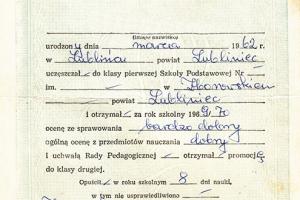 (imię i nazwisko)
urodzony dnia marca 1962 r.
w Lublińcu powiat Lubliniec
uczęszczał do klasy pierwszej Szkoły Podstawowej Nr
im. w
powiat Lubliniec
i otrzymał za rok szkolny 1969/70
ocenę ze sprawowania bardzo dobry
ogólną ocenę z przedmiotów nauczania dobry
i uchwałą Rady Pedagogicznej otrzymał promocję
do klasy drugiej.
Opuścił w roku szkolnym 8 dni nauki,
w tym nie usprawiedliwiono